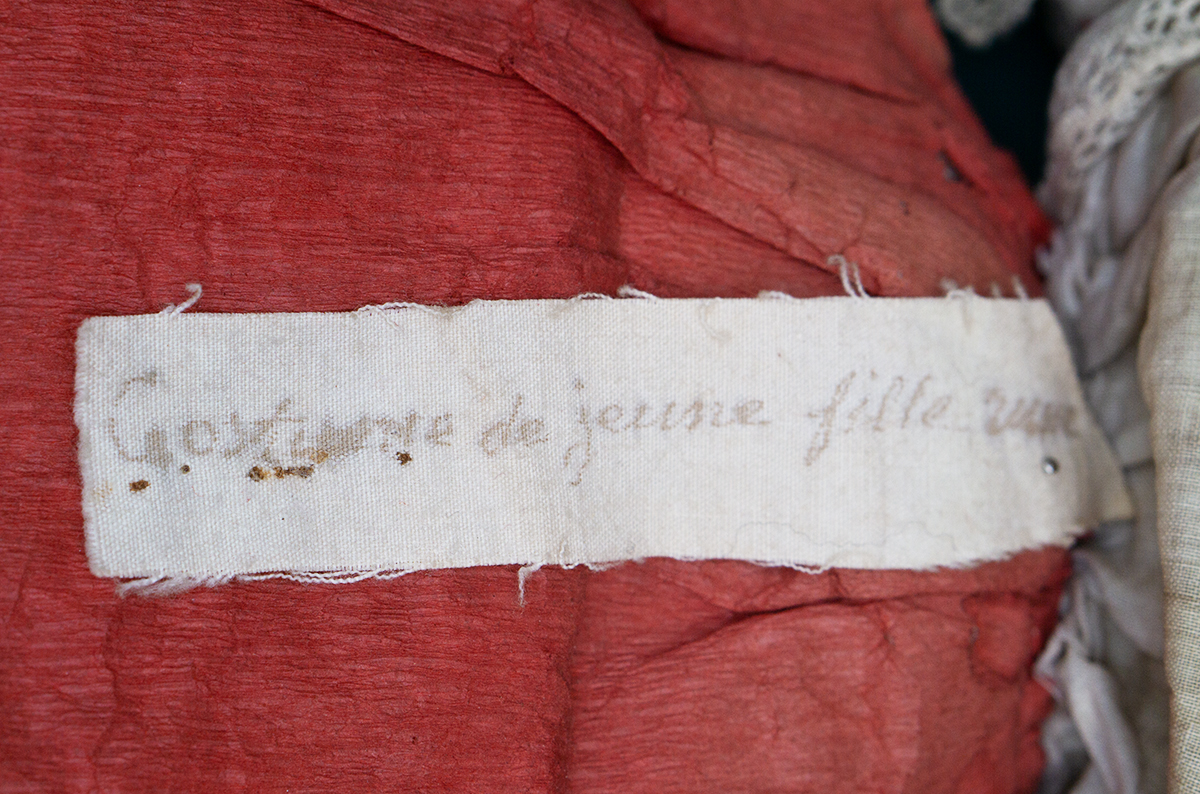 Costume de jeune fille russe